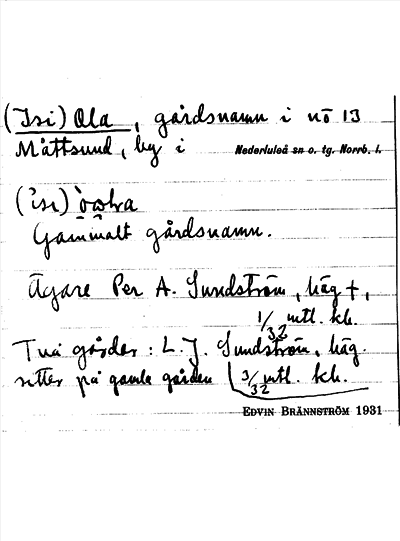 (Isi) Ola, gårdsnamn i nö 13
Måttsund, by i Nederluleå sn o. tg. Norrb. l.
Gammalt gårdsnamn.
Ägare Per A. Sundström, häg †,
1/32 mtl. kh.
Två gårdar: L. J. Sundström, häg.
sitter på gamla gården 3/32 mtl. kh.
EDVIN BRÄNNSTRÖM 1931